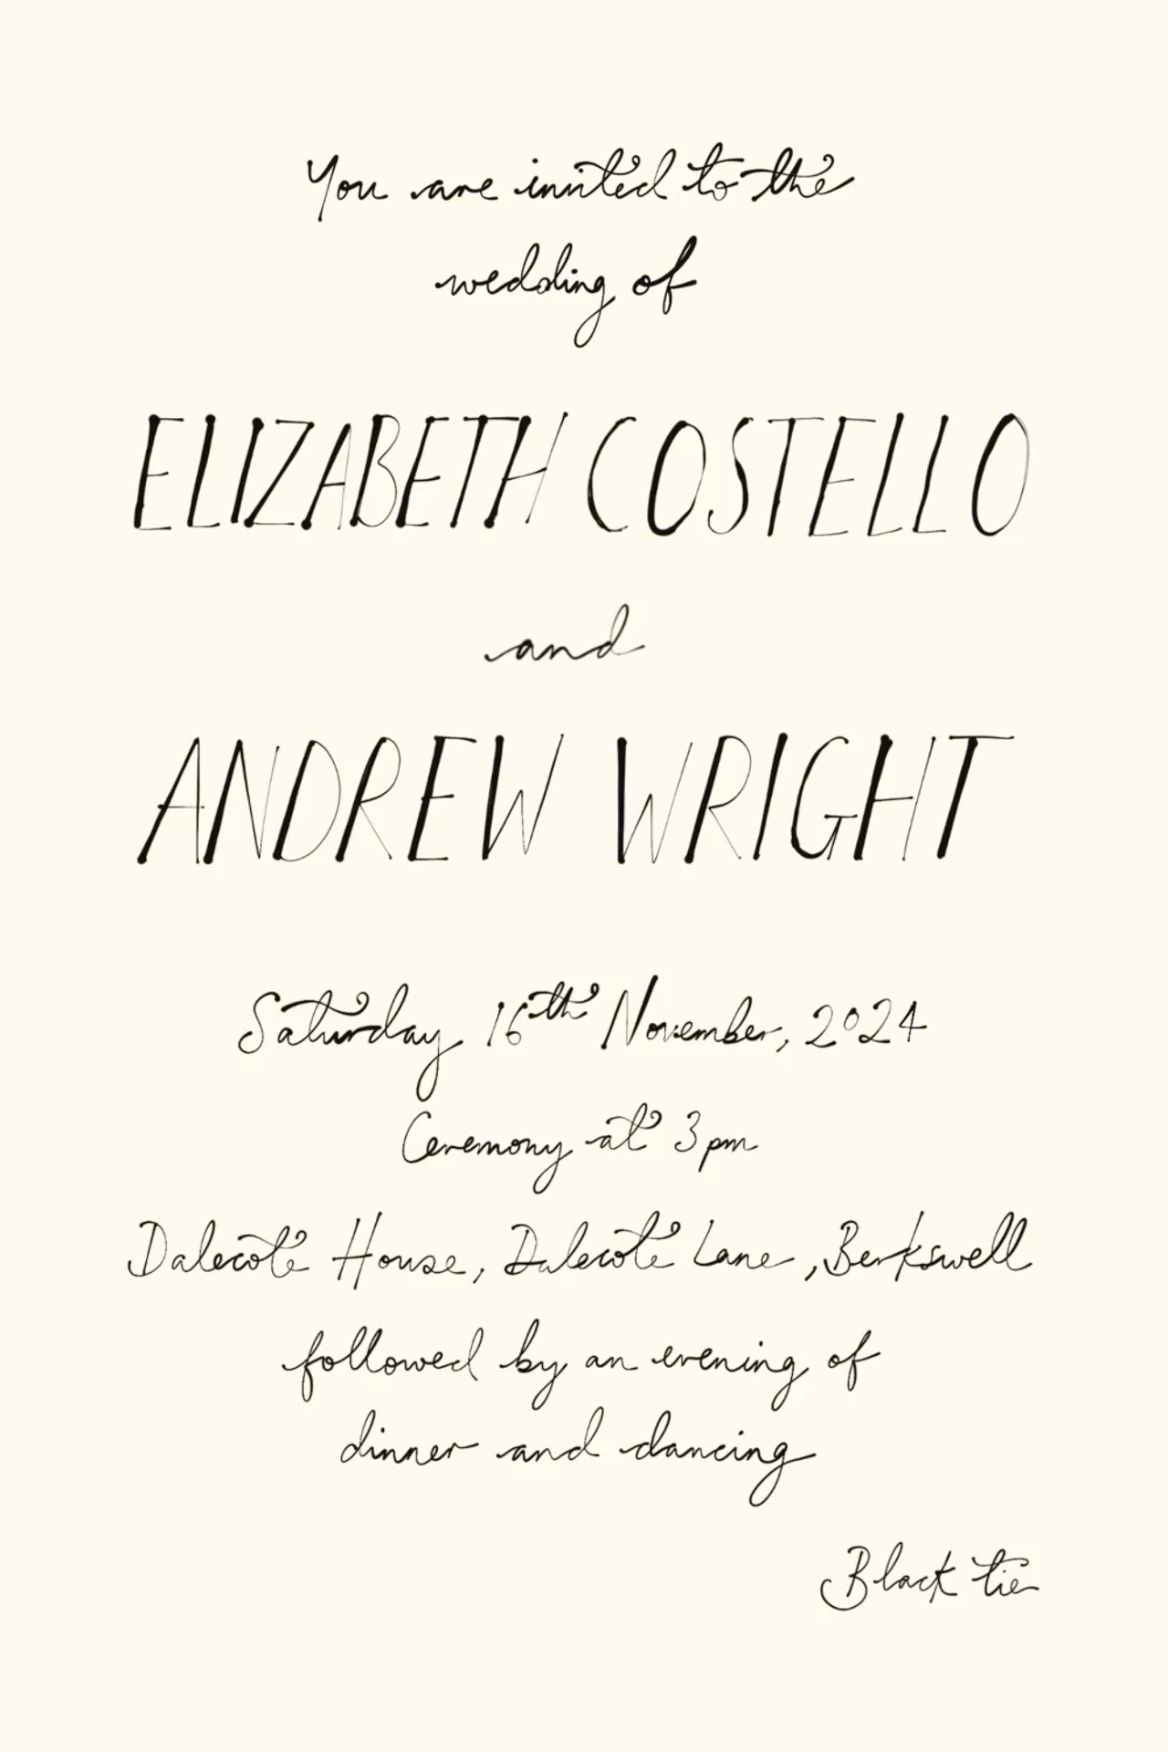 You are invited to the
wedding of
ELIZABETH COSTELLO
and
ANDREW WRIGHT
Saturday 16th November, 2024
Ceremony at 3pm
Dalecote House, Dalecote Lane, Berkswell
followed by an evening of
dinner and dancing
Black tie